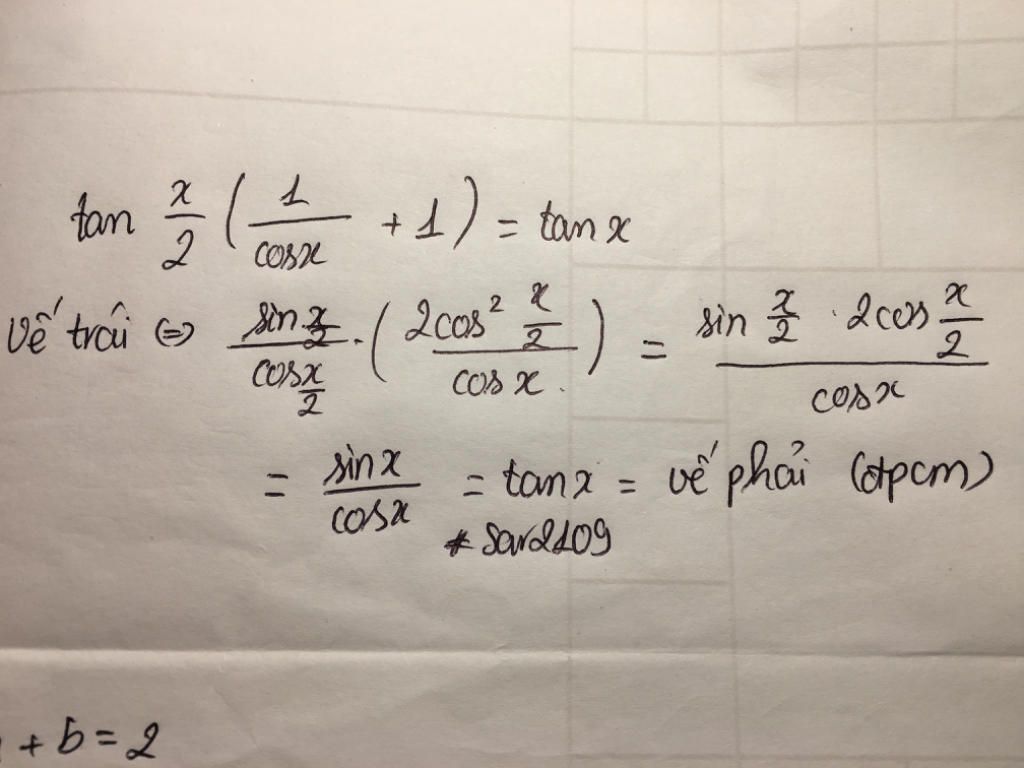 tan x/2 (1/cosx + 1) = tan x
Vế trái ⇔ sin x/2 / cos x/2 . (2cos² x/2 / cos x.) = sin x/2 . 2cos x/2 / cosx
= sinx/cosx = tanx = vế phải (đpcm)
* Sar2109
+ b = 2